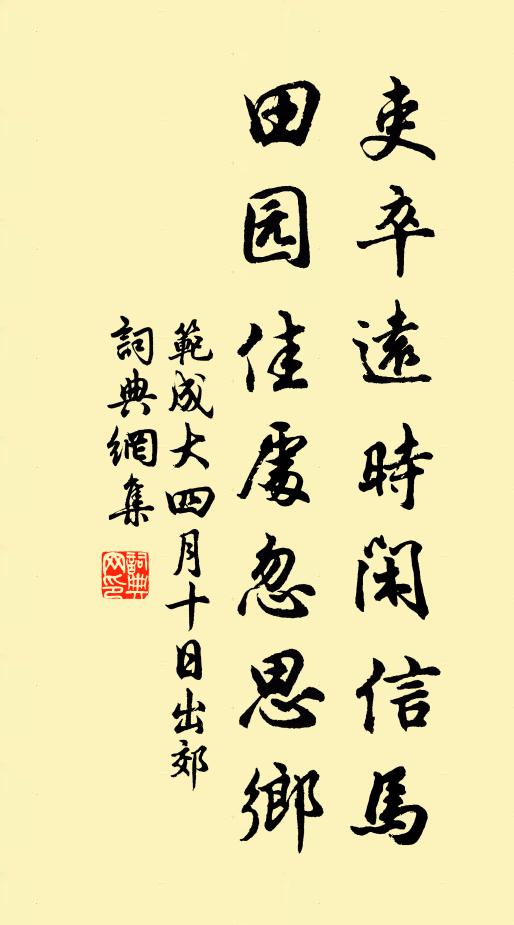 吏卒遠時閑信馬
田园佳處忽思鄉
範成大四月十日出郊
詞典網集
詞典网印